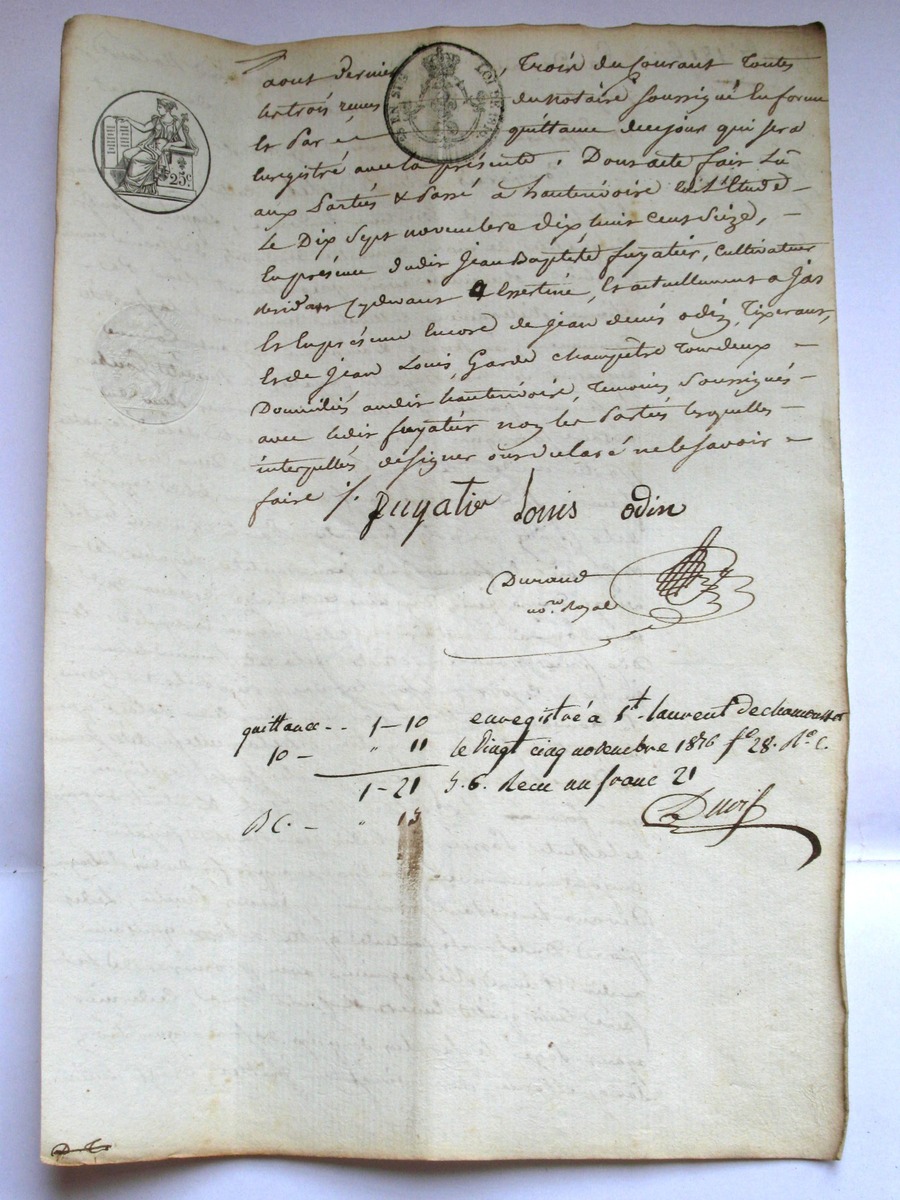 aout dernier , trois du courant toutes
les trois recues du notaire soussigné en forme
et par quittance de ce jour qui sera
enregistré avec la présente. Dont acte fait Lu
aux Parties & Passé à hauterivoire en l'Etude –
Le Dix Sept novembre dix huit cent Seize, –
En présence dudit Jean Baptiste fuyatier, cultivateur
resid.ᵗ cydevant a Essertine, et actuellement a Jas
Et En présence Encore de Jean denis odin, Tixerant,
et de Jean Louis, Garde champêtre Tous deux –
Domiciliés audit hauterivoire, Temoins Soussignés –
avec ledit fuyatier non les Parties lesquelles –
interpellés de signer ont déclaré ne le savoir –
faire /.
fuyatier Louis odin
Durand
no.re Royal
quittance - - 1–10 enregistré à St. laurent de chamousset
10 – " 11 le Vingt cinq novembre 1816 fo 28. Ro C.
1–21 5. 6. Recu un franc 21
D C. – " 15
25c
LOI DE